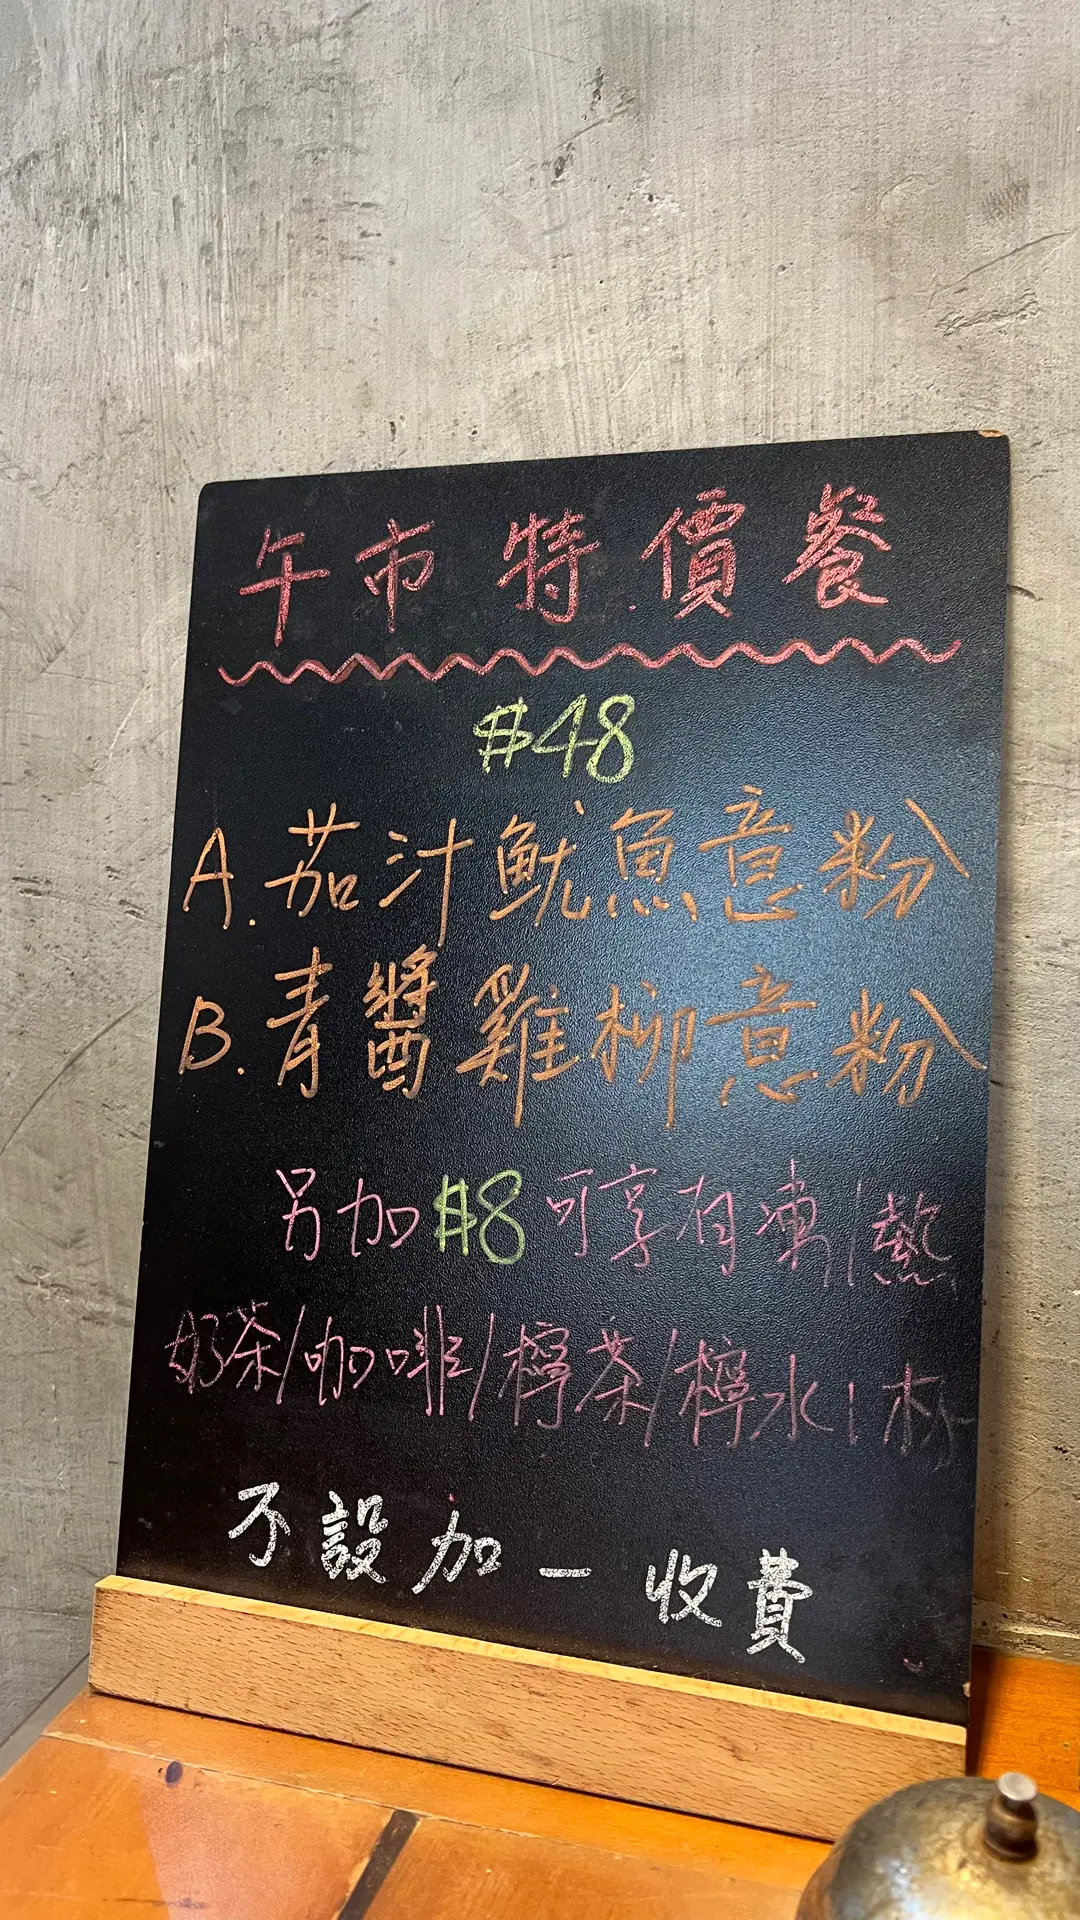 午市特價餐
$48
A.茄汁魷魚意粉
B.青醬雞柳意粉
另加$8可享有凍/熱
奶茶/咖啡/檸茶/檸水1杯
不設加一收費